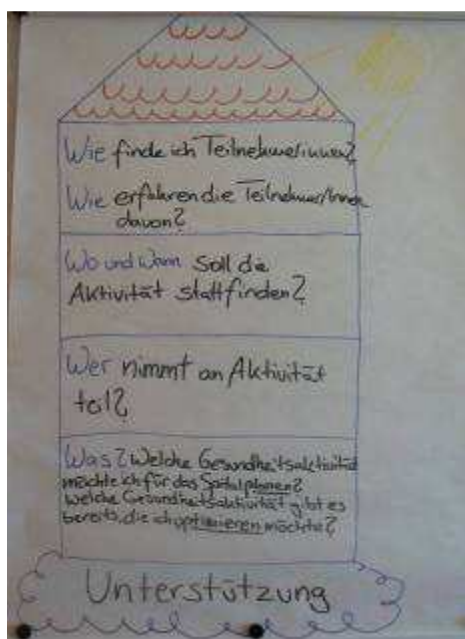 Wie finde ich Teilnehmer/innen?
Wie erfahren die Teilnehmer/Innen
davon?
Wo und Wann soll die
Aktivität stattfinden?
Wer nimmt an Aktivität
teil?
Was? Welche Gesundheitsaktivität
möchte ich für das Spital planen?
Welche Gesundheitsaktivität gibt es
bereits, die ich optimieren möchte?
Unterstützung